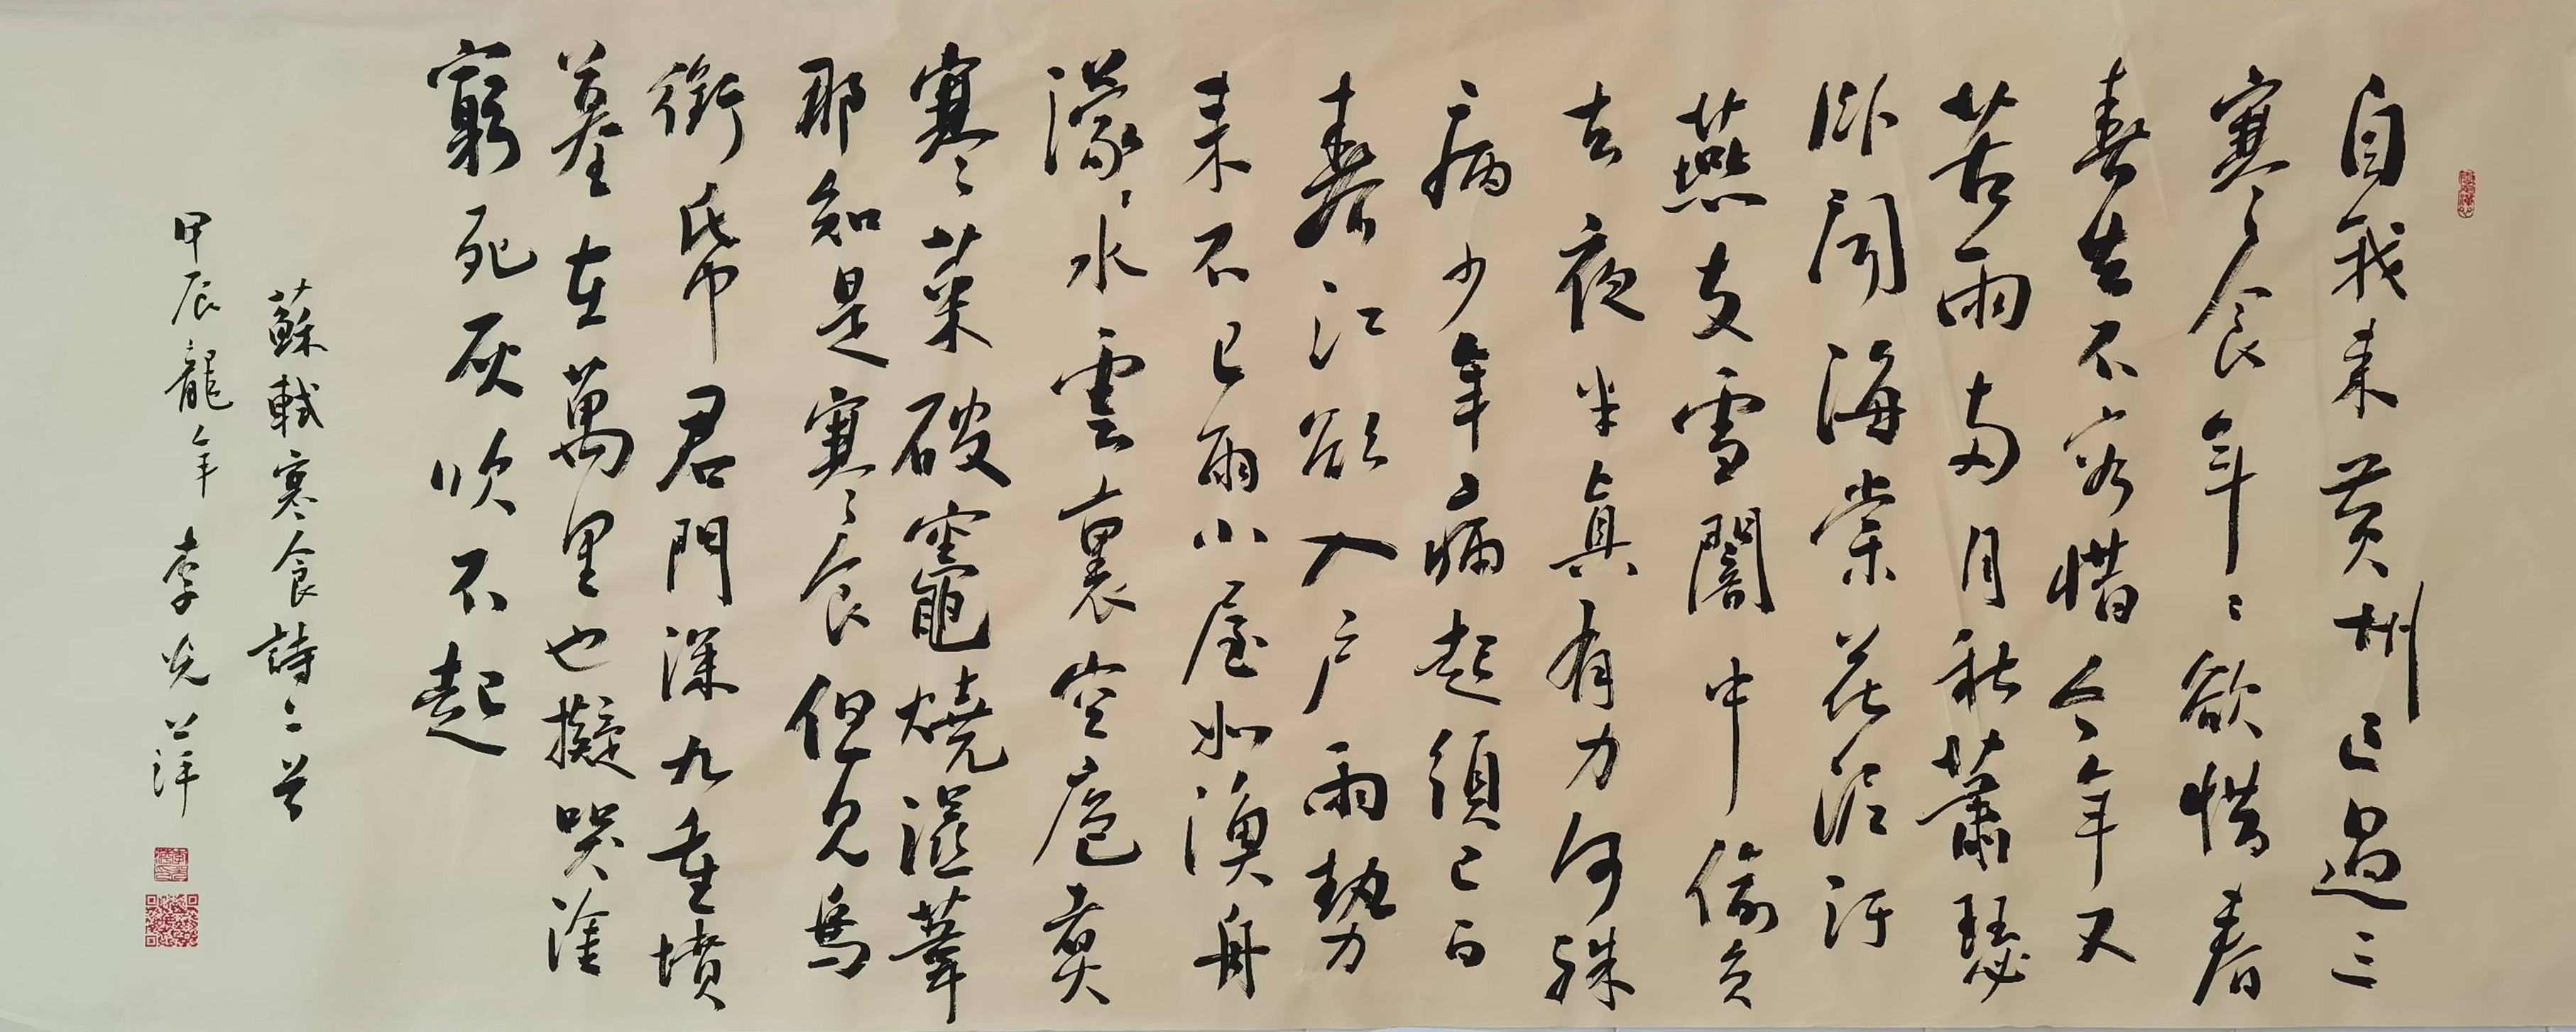 自我来黄州已過三
寒食年年欲惜春
春去不容惜今年又
苦雨两月秋蕭瑟
卧聞海棠花泥汙
燕支雪闇中偷負
去夜半真有力何殊
病少年病起須已白
春江欲入户雨勢
来不已雨小屋如漁舟
濛濛水雲裏空庖煮
寒菜破竈燒濕葦
那知是寒食但見烏
銜帋君門深九重墳
墓在萬里也擬哭塗
窮死灰吹不起
蘇軾寒食詩二首
甲辰龍年李光萍